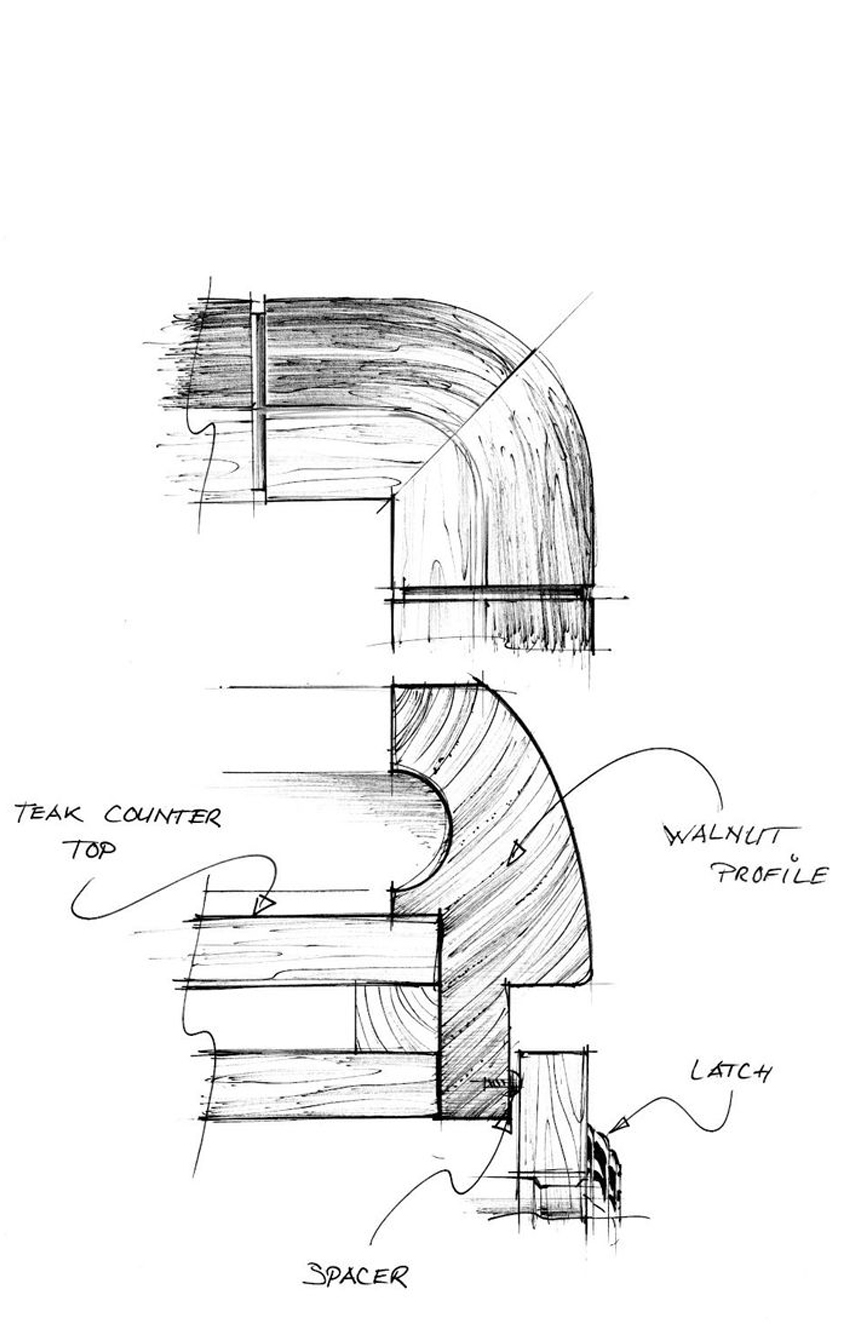 TEAK COUNTER
TOP
WALNUT
PROFILE
LATCH
SPACER